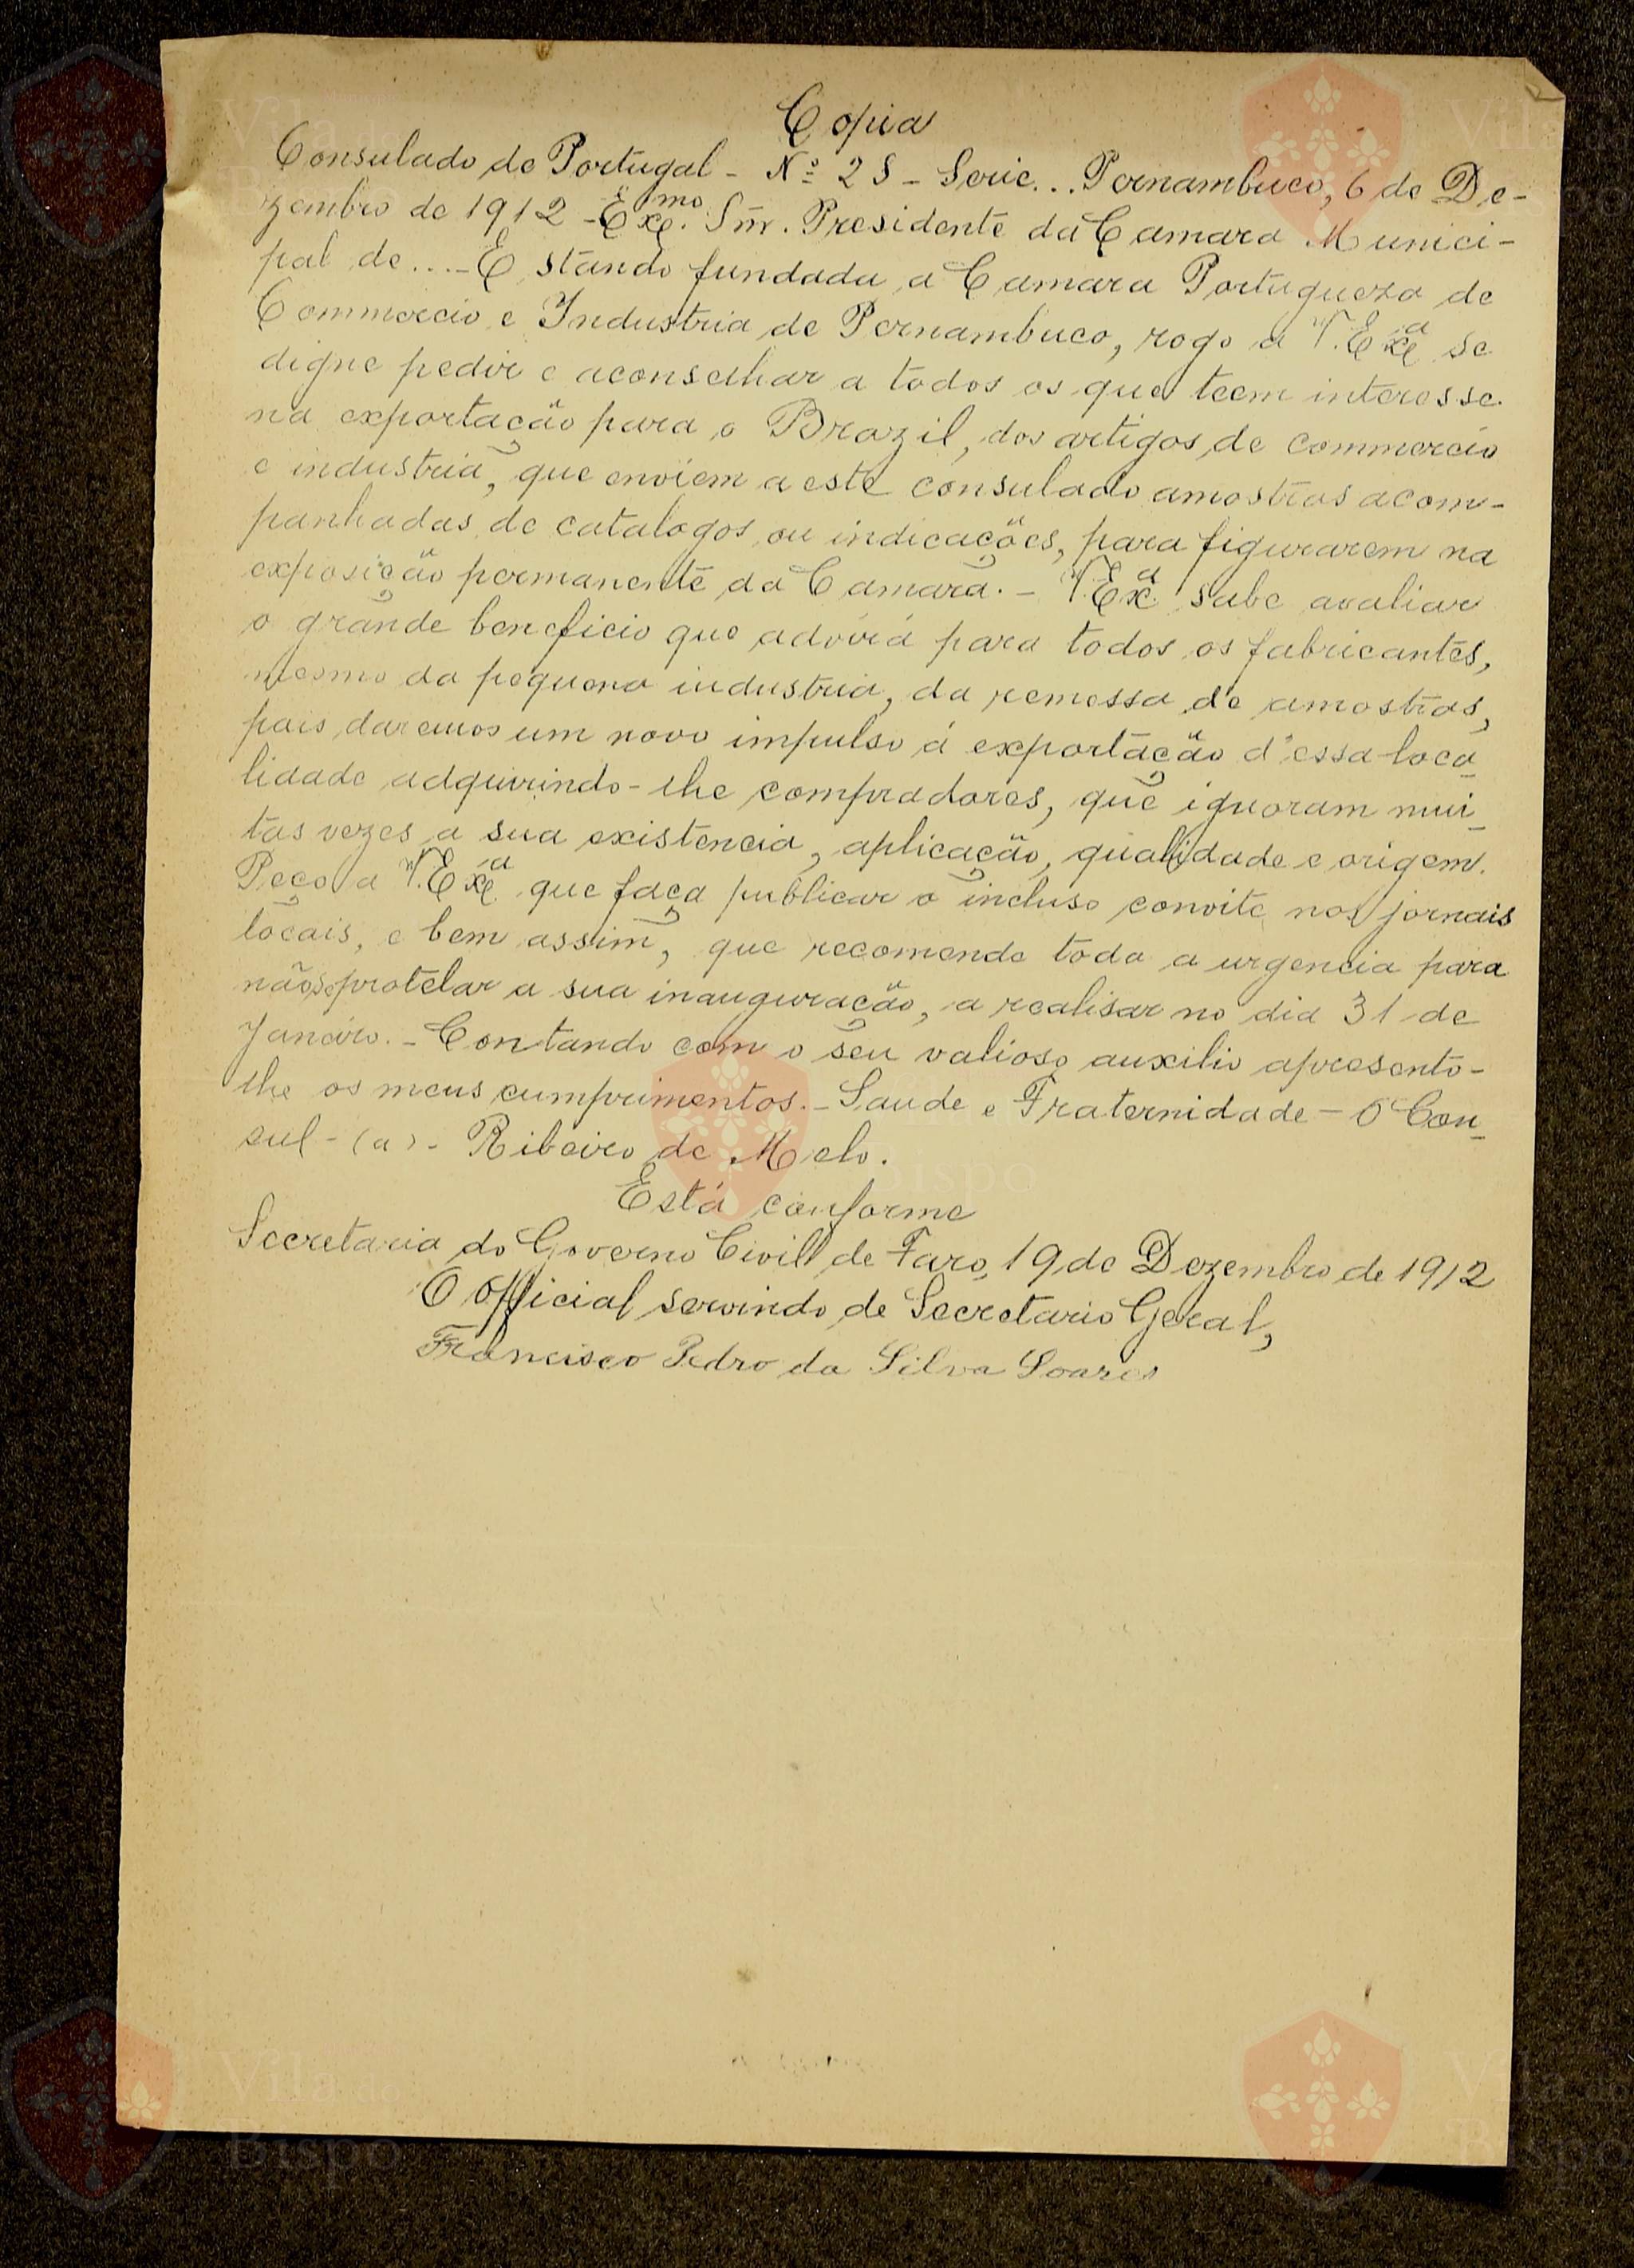 Copia
Consulado de Portugal - Nº 25 - Serie... Pernambuco, 6 de De-
zembro de 1912 - Exmo. Snr. Presidente da Camara Munici-
pal de... - Estando fundada a Camara Portugueza de
Commercio e Industria de Pernambuco, rogo a V. Exª se
digne pedir e aconselhar a todos os que teem interesse
na exportação para o Brazil, dos artigos de commercio
e industria, que enviem a este consulado amostras acom-
panhadas de catalogos ou indicações, para figurarem na
exposição permanente da Camara. - V. Exª sabe avaliar
o grande beneficio que advirá para todos os fabricantes,
mesmo da pequena industria, da remessa de amostras,
pois daremos um novo impulso á exportação d'essa loca-
lidade adquirindo-lhe compradores, que ignoram mui-
tas vezes a sua existencia, aplicação, qualidade e origem.
Peço a V. Exª que faça publicar o incluso convite nos jornais
locais, e bem assim, que recomende toda a urgencia para
não se protelar a sua inauguração, a realisar no dia 31 de
Janeiro. - Contando com o seu valioso auxilio apresento-
lhe os meus cumprimentos. - Saude e Fraternidade - O Con-
sul - (a) - Ribeiro de Melo.
Está conforme
Secretaria do Governo Civil de Faro, 19 de Dezembro de 1912
O Official servindo de Secretario Geral,
Francisco Pedro da Silva Soares
Vila do
Bispo